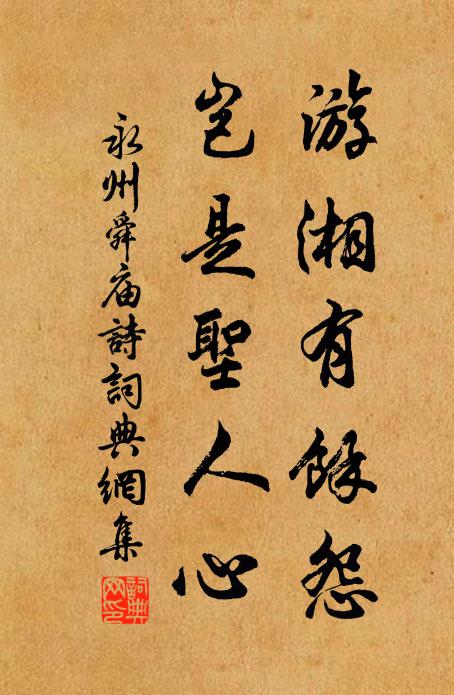 游湘有餘怨
豈是聖人心
永州舜庙詩詞典網集
詞典網印